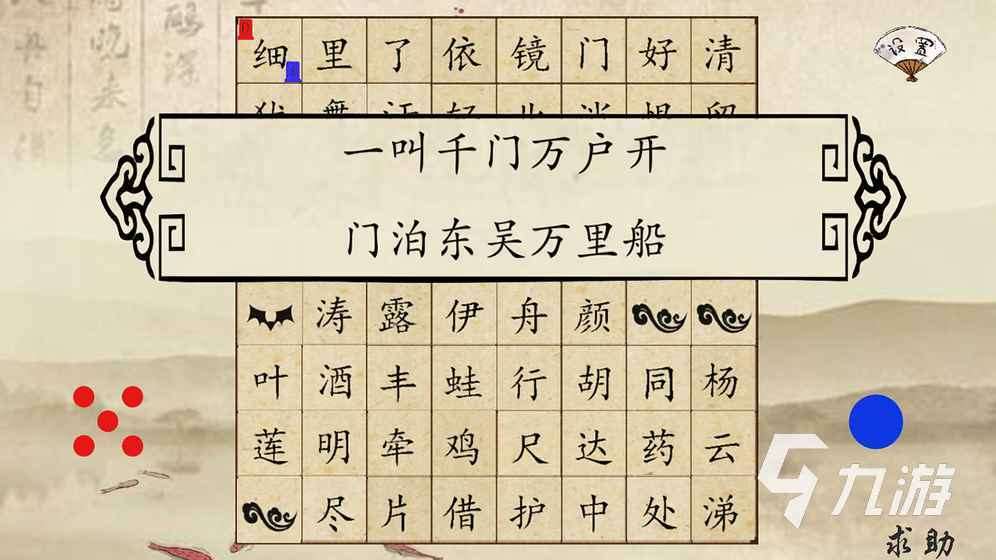 设置
细里了依镜门好清
一叫千门万户开
门泊东吴万里船
涛露伊舟颜
叶酒丰蛙行胡同杨
莲明牵鸡尺达药云
尽片借护中处涕
九游
求助